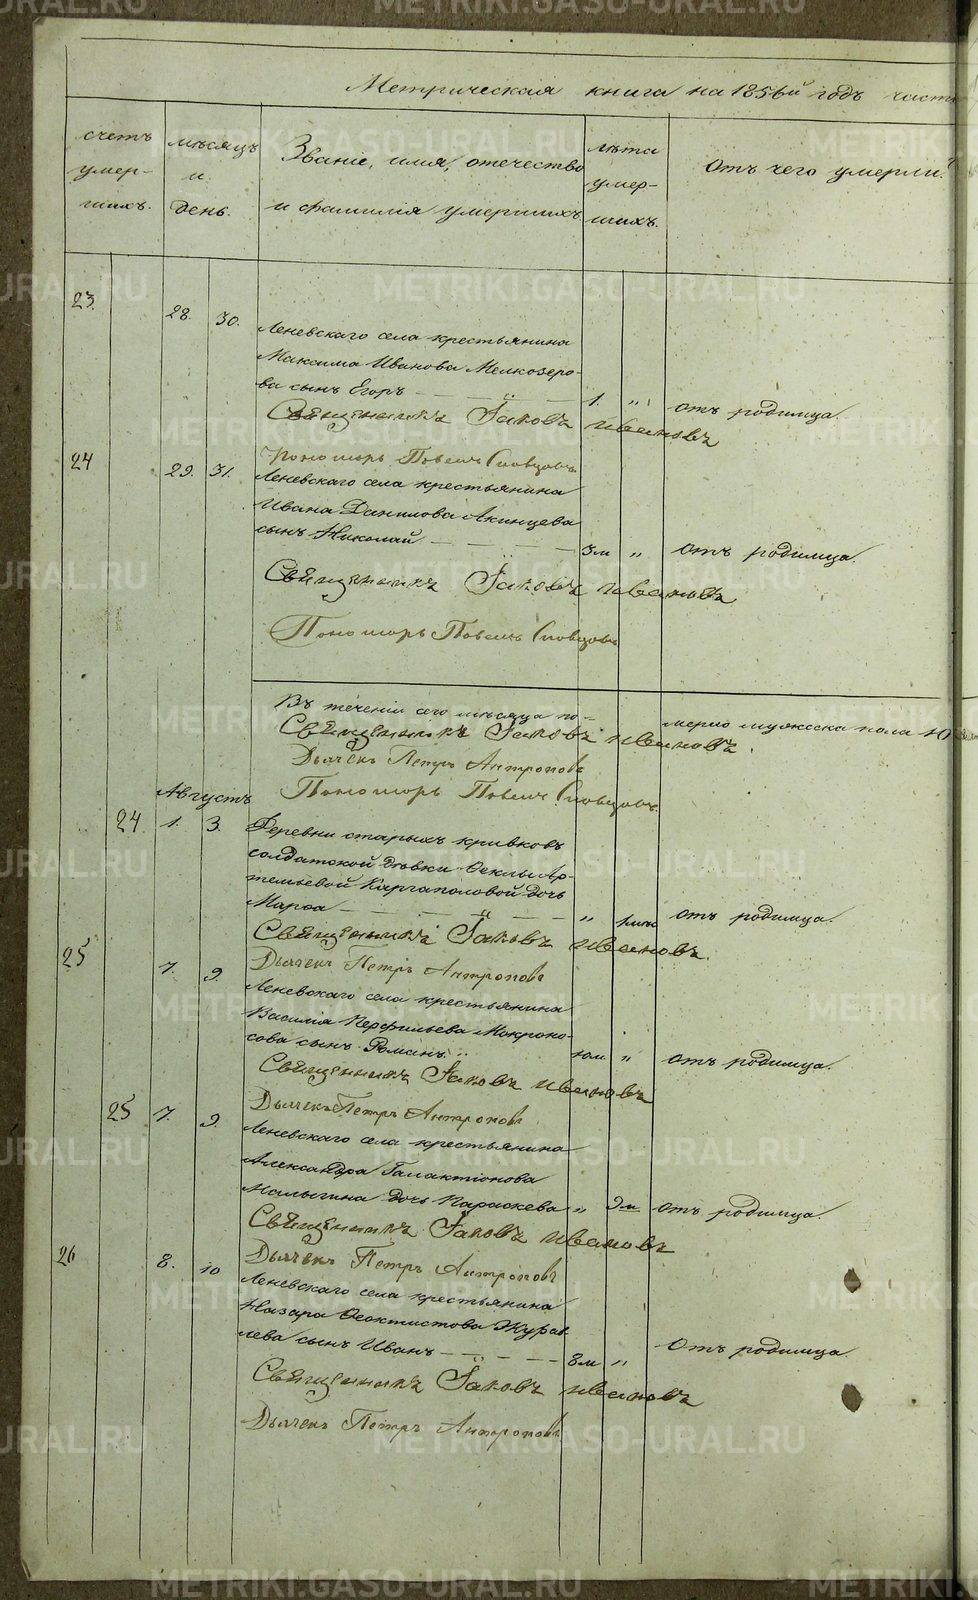 METRIKI.GASO-URAL.RU
Метрическая книга на 1856й годъ часть
счетъ умер- шихъ.
мѣсяцъ и день.
Званіе, имя, отечество
и фамилія умершихъ.
лѣта умер- шихъ.
отъ чего умерли?
23. 28. 30.
Леневскаго села крестьянина
Максима Иванова Мелкозеро-
ва сынъ Егоръ 1. " отъ родимца.
Священникъ Іаковъ Ивановъ
Пономарь Павелъ Словцовъ
24 29. 31. Леневскаго села крестьянина
Ивана Данилова Акинцева
сынъ Николай 3м " отъ родимца.
Священникъ Іаковъ Ивановъ
Пономарь Павелъ Словцовъ
Въ теченіи сего мѣсяца по- мерло мужеска пола 10
Священникъ Іаковъ Ивановъ.
Дьячекъ Петръ Антроповъ
Пономарь Павелъ Словцовъ
Августъ
24. 1. 3. Деревни старыхъ кривковъ
солдатской дѣвки Ѳеклы Ар-
темьевой Каргаполовой дочь
Марѳа " отъ родимца.
Священникъ Іаковъ Ивановъ.
Дьячекъ Петръ Антроповъ
25 7. 9. Леневскаго села крестьянина
Василія Перфильева Мокроно-
сова сынъ Романъ 10м. " отъ родимца.
Священникъ Іаковъ Ивановъ
Дьячекъ Петръ Антроповъ
25 7. 9. Леневскаго села крестьянина
Александра Галактіонова
Малыгина дочь Параскева " 9м отъ родимца.
Священникъ Іаковъ Ивановъ
Дьячекъ Петръ Антроповъ
26 8. 10 Леневскаго села крестьянина
Назара Ѳеоктистова Журав
лева сынъ Иванъ 8м " отъ родимца.
Священникъ Іаковъ Ивановъ
Дьячекъ Петръ Антроповъ